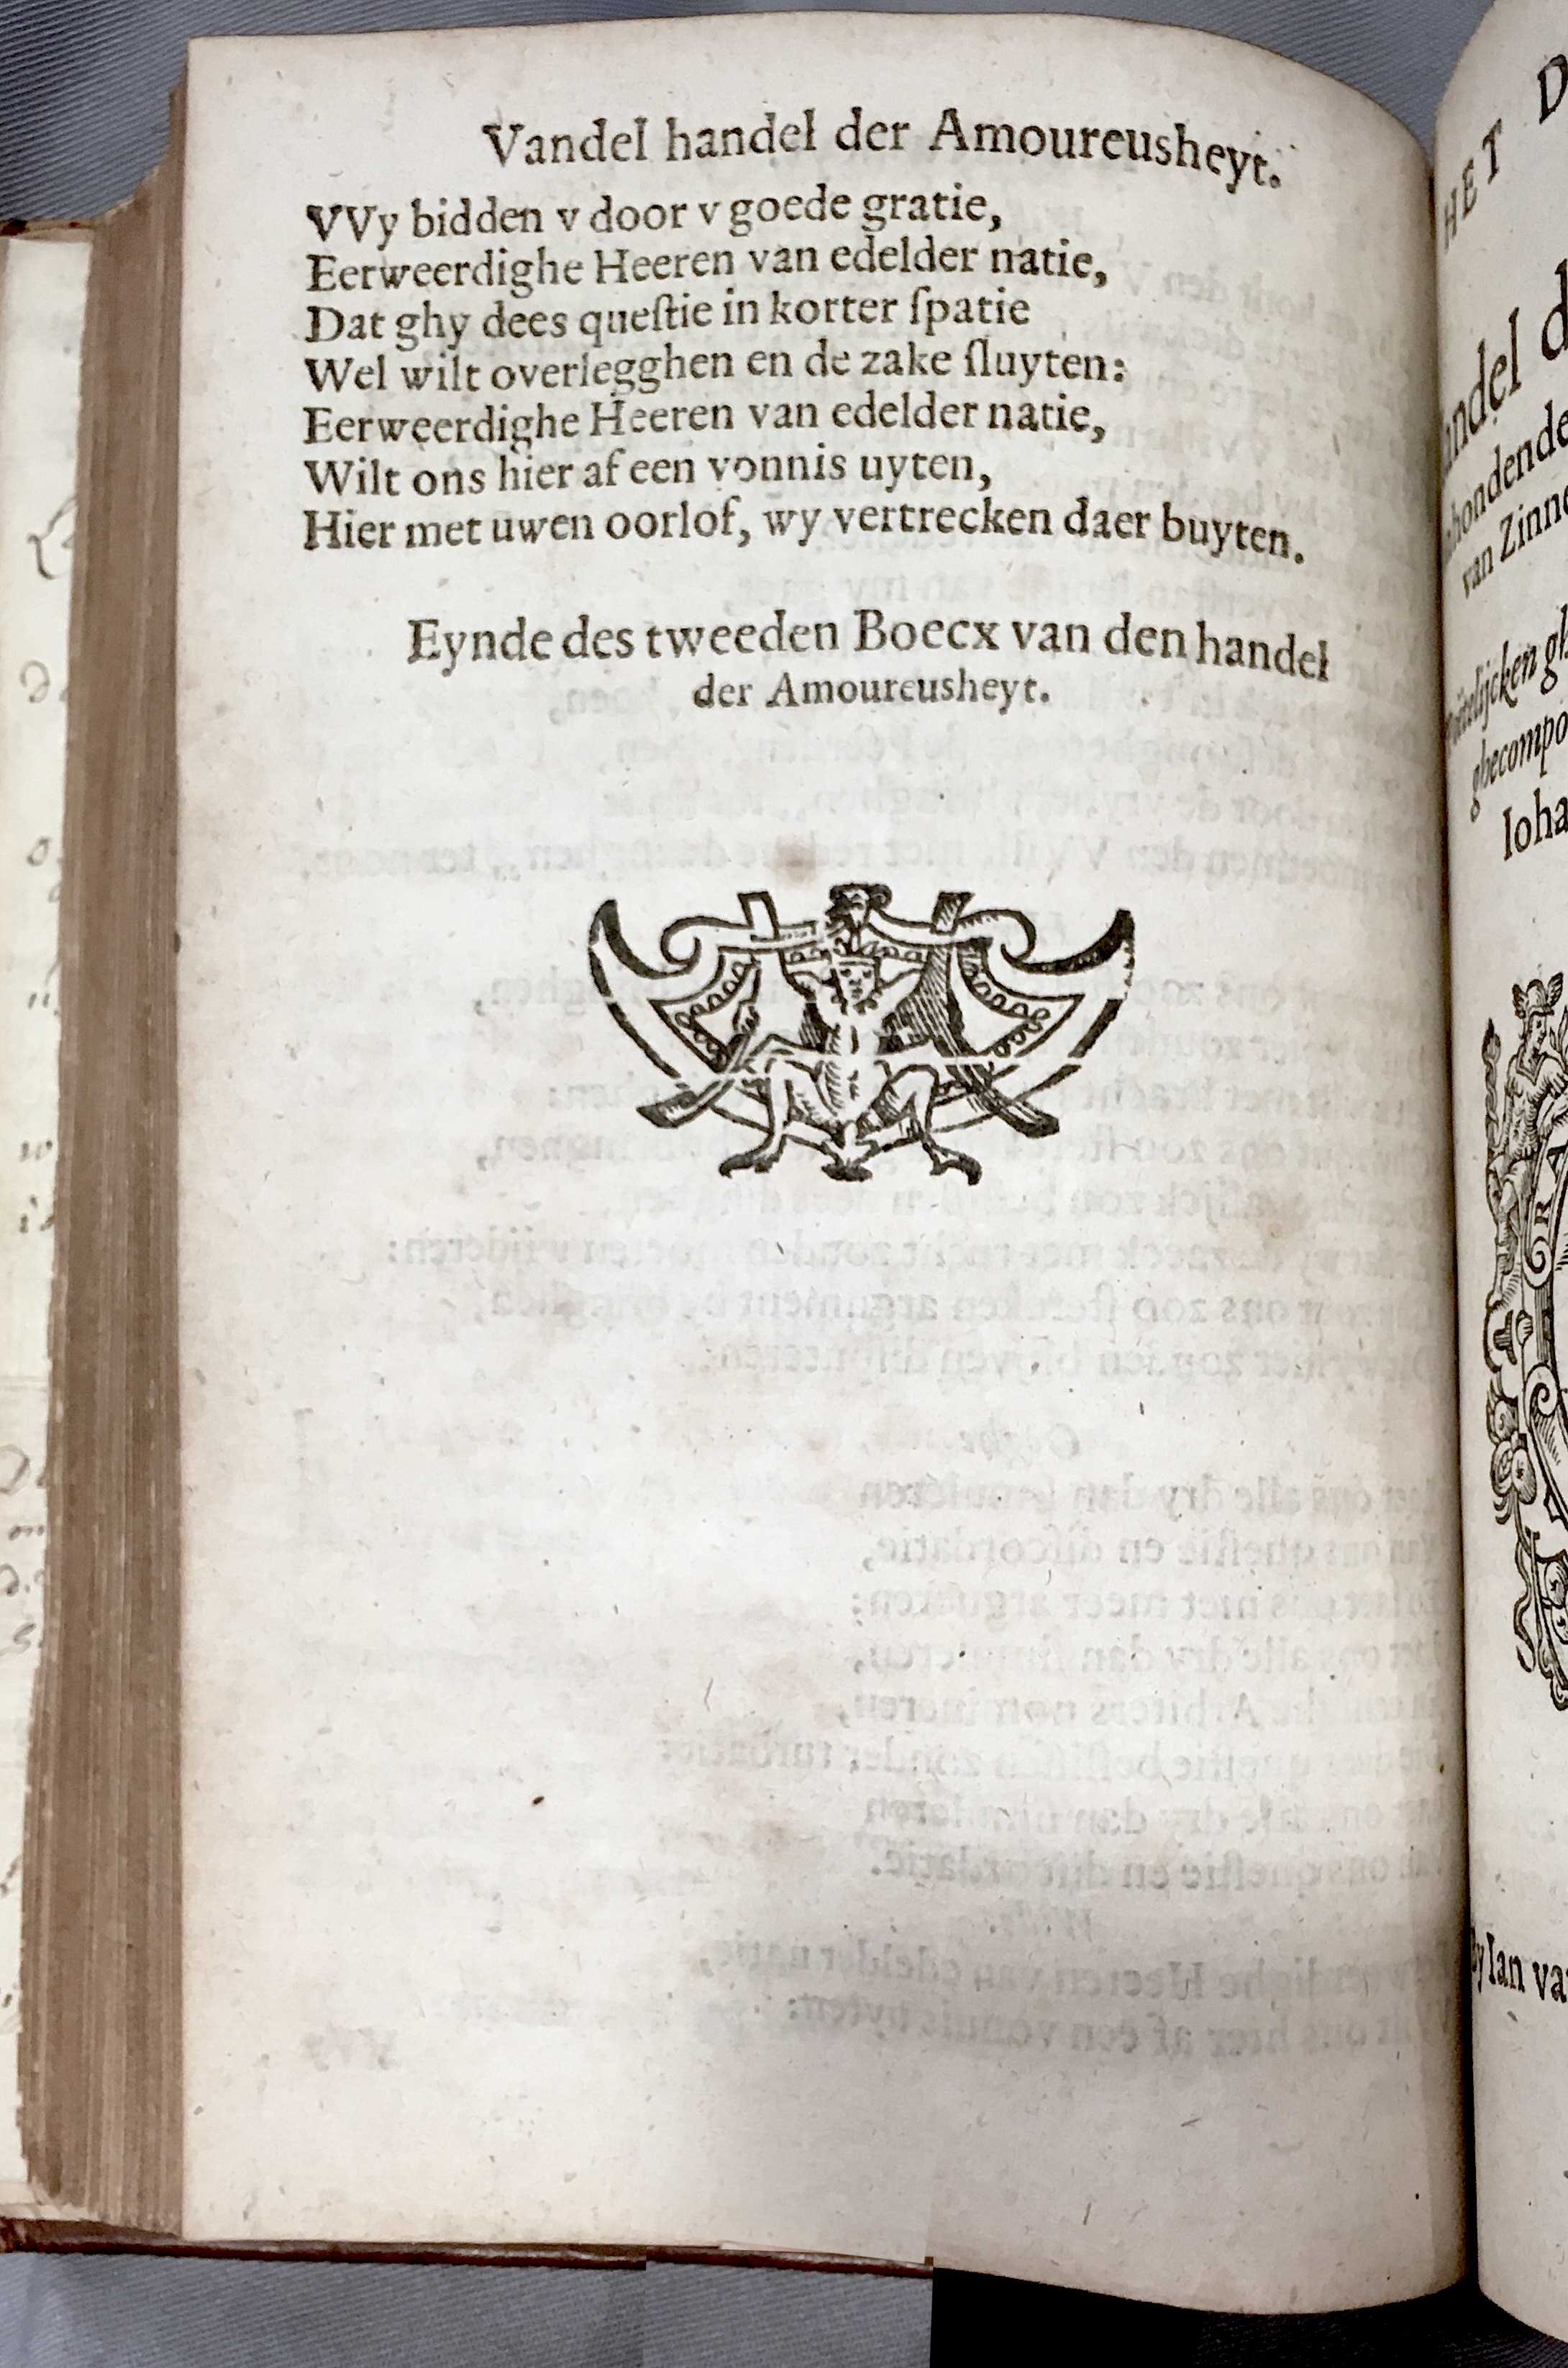 Vandel handel der Amoureusheyt.
VVy bidden v door v goede gratie,
Eerweerdighe Heeren van edelder natie,
Dat ghy dees queſtie in korter ſpatie
Wel wilt overlegghen en de zake ſluyten:
Eerweerdighe Heeren van edelder natie,
Wilt ons hier af een vonnis uyten,
Hier met uwen oorlof, wy vertrecken daer buyten.
Eynde des tweeden Boecx van den handel
der Amoureusheyt.
HET
van Zinn
ghecompo
Ioha
By Ian va